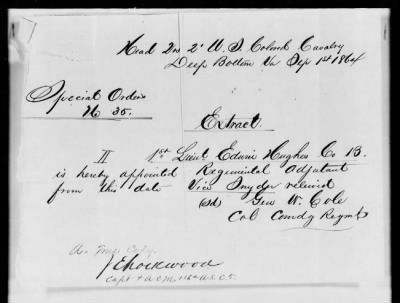 Head Drs 2d U.S. Colored Cavalry
Deep Bottom Va Sep 1st 1864
Special Orders
No 35.
Extract.
II 1st Lieut Edwin Hughes Co B.
is hereby appointed Regimental Adjutant
from this date Vice Snyder relieved
(sd) Geo W. Cole
Col Comdg Regmt
A True Copy
Capt & A.C.M. 118th U.S.C.T.